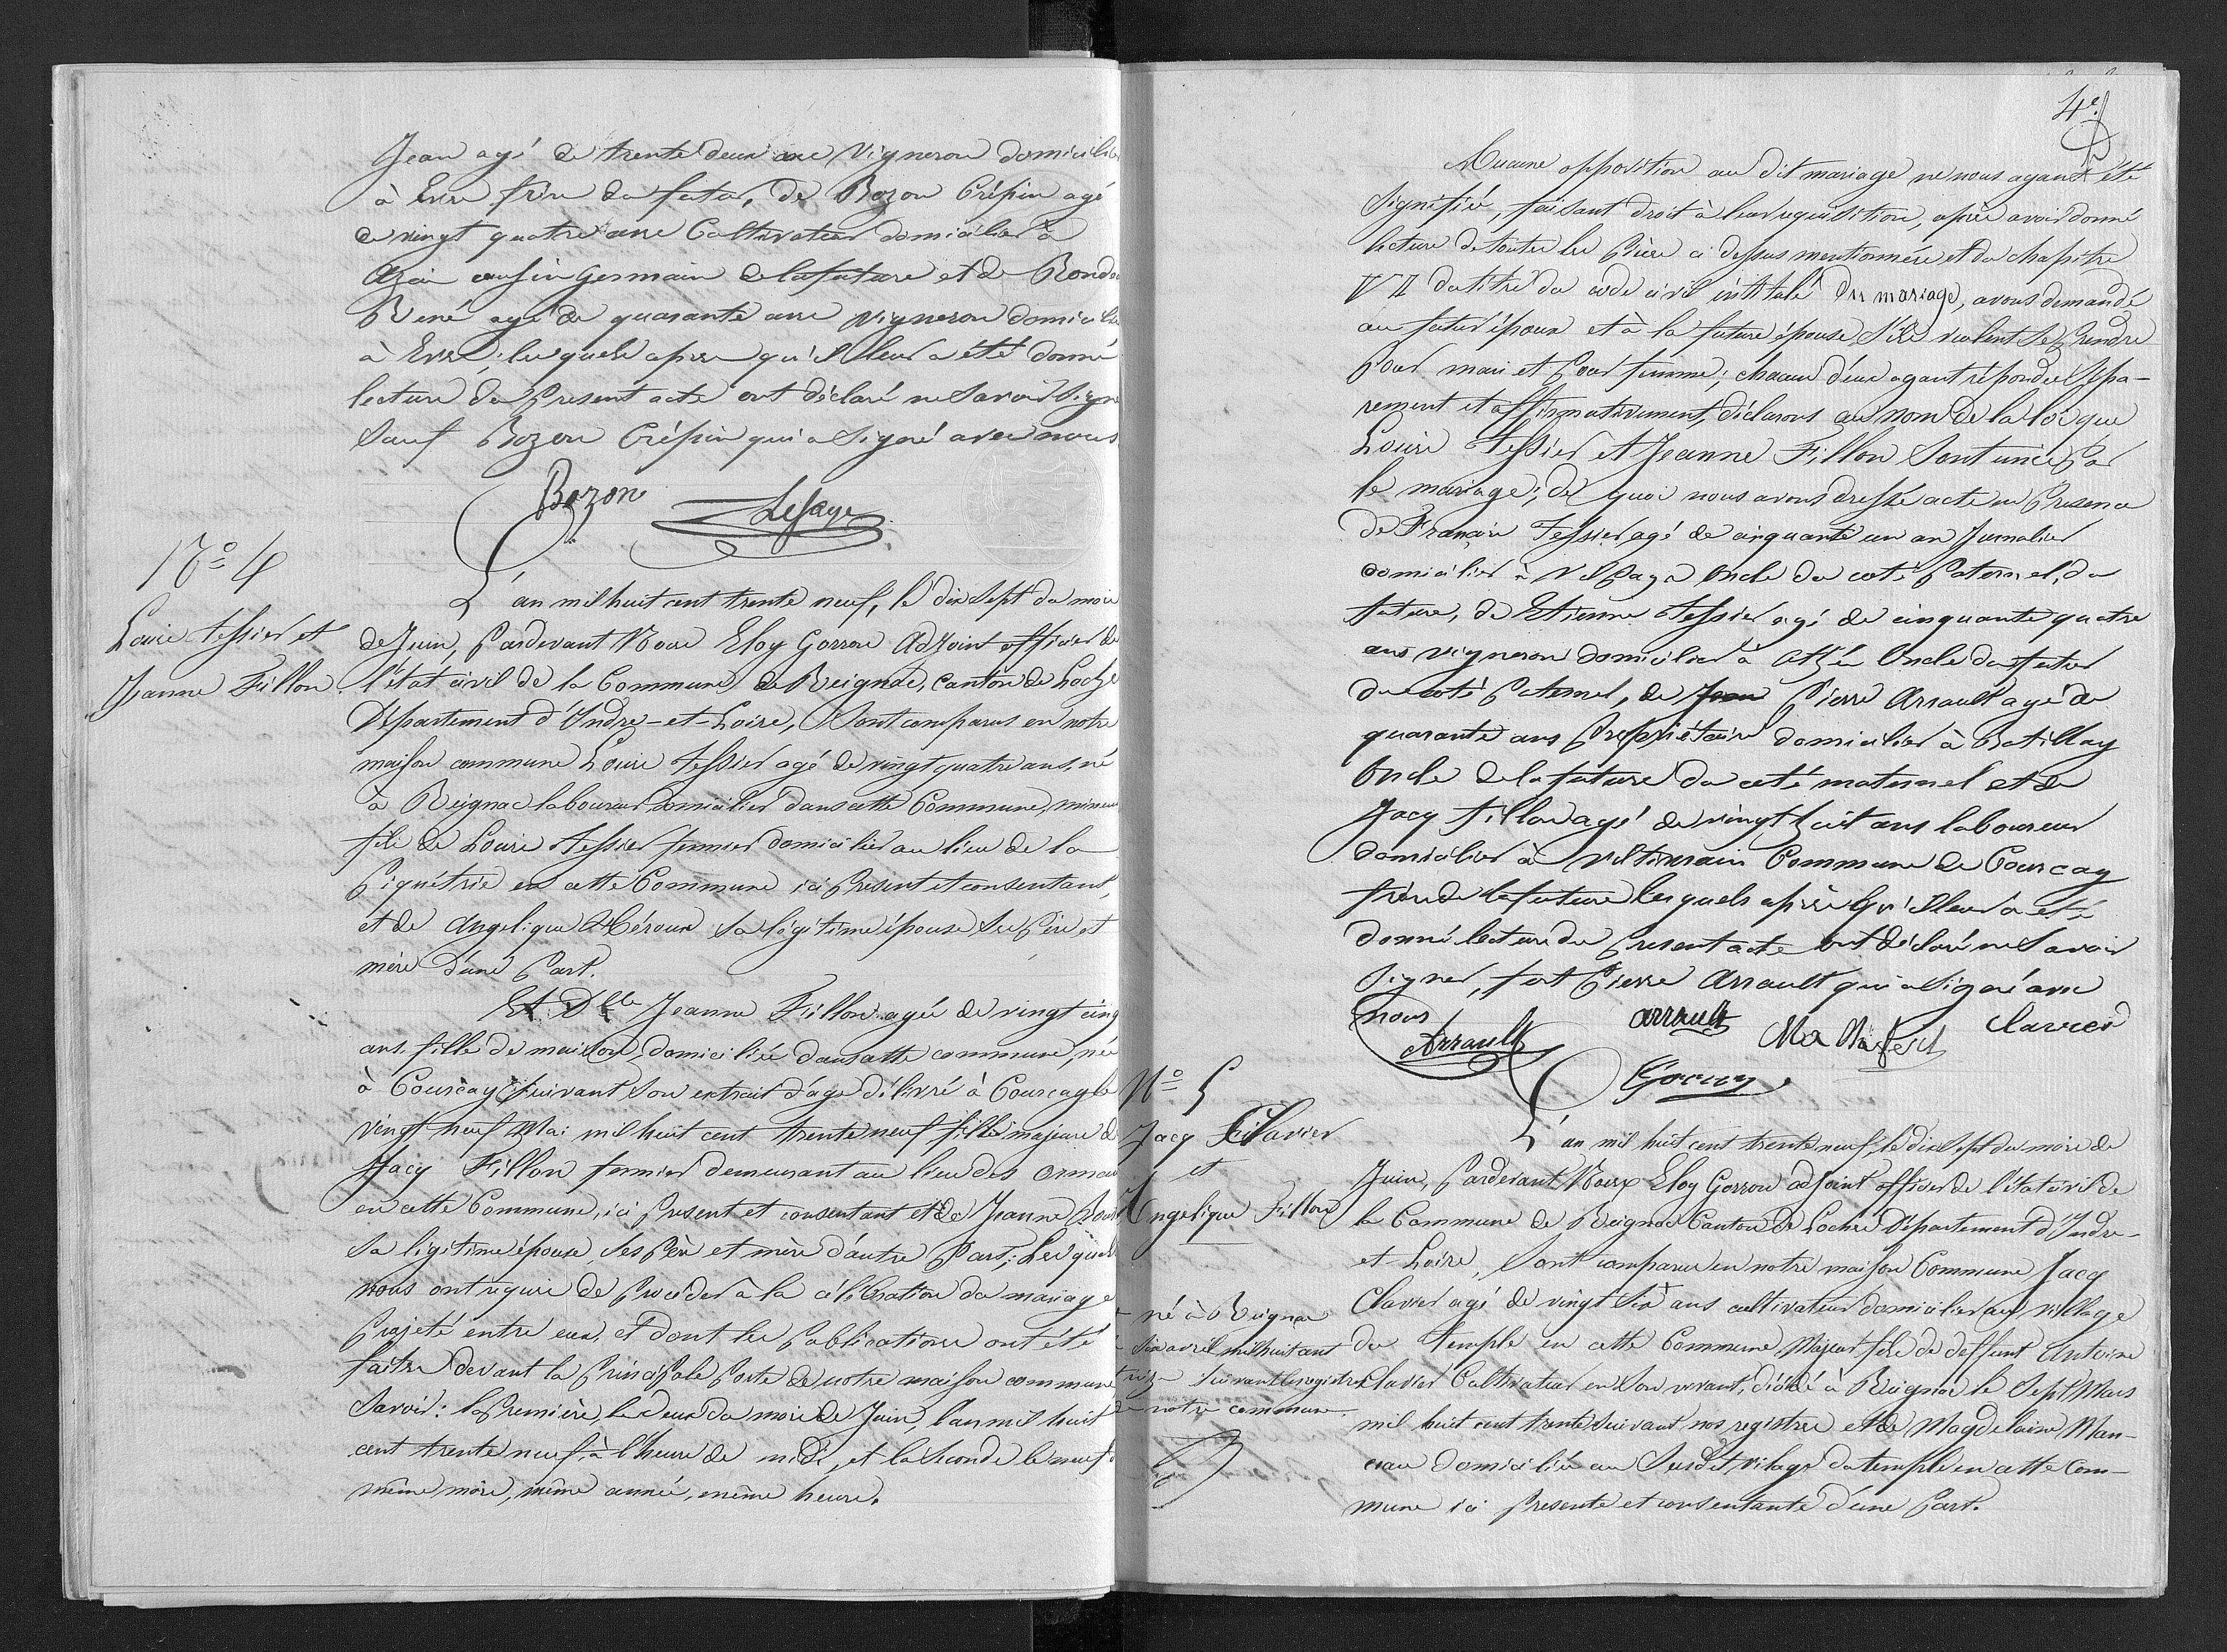 Jean agé de trente deux ans Vigneron domicilié
à Evre frère du futur, de Bozon Crépin agé
de vingt quatre ans Cultivateur domicilier à
Azai cousin germain de la future et de Rondo
René agé de quarante ans vigneron domicilié
à Evre, lesquels après qu'il leur a été donné
lecture du présent acte ont déclaré ne savoir signe
Sauf Bozon Crépin qui a signé avec nous
Bozon Lesage
N° 4
Louis Tessier et
Jeanne Fillon
L'an mil huit cent trente neuf, le dix sept du mois
de Juin, pardevant Nous Eloy Gorron Adjoint officier de
l'état civil de la Commune de Reignac, Canton de Loche
Département d'Indre-et-Loire, Sont comparus en notre
maison commune Louis Tessier agé de vingt quatre ans, né
à Reignac laboureur domicilier dans cette Commune, mineur
fils de Louis Tessier fermier domicilier au lieu de la
Piquétrie en cette Commune ici présent et consentant,
et de Angelique Héroux sa légitime épouse Ses père et
mère d'une part.
Et Dlle Jeanne Fillon agée de vingt cinq
ans fille de maison, domiciliée dans cette commune, née
à Courcay suivant son extrait d'age délivré à Courcay le
vingt neuf Mai mil huit cent trente neuf fille majeure de
Jacq Fillon fermier demeurant au lieu des Ormau
en cette Commune, ici présent et consentant et de Jeanne
sa légitime épouse, Ses père et mère d'autre part; Lesquels
nous ont requis de procéder à la célébration du mariage
projeté entre eux et dont les publications ont été
faites devant la principale porte de notre maison commune
Savoir: la première, le deux du mois de Juin, l'an mil huit
cent trente neuf, à l'heure de midi, et la Seconde le neuf
même mois, même année, même heure.
4e
Aucune opposition au dit mariage ne nous ayant été
Signifiée, faisant droit à leur requisition, après avoir donné
lecture de toutes les pièces ci dessus mentionnées et du chapitre
VI du titre du code civil intitulé du mariage, avons demandé
au futur époux et à la future épouse S'ils veulent Se prendre
pour mari et pour femme; chacun d'eux ayant répondu Sépa-
rement et affirmativement, déclarons au nom de la loi que
Louis Tessier et Jeanne Fillon Sont unis par
le mariage; de quoi nous avons dressé acte en présence
de François Tessier agé de cinquante un an Journalier
domicilier à oncle du coté paternel, du
future, de Etienne Tessier agé de cinquante quatre
ans vigneron domicilier à Athée Oncle du futur
du coté paternel, de Pierre Arrault agé de
quarante ans propriétaire domicilier à Batillay
Oncle de la future du coté maternel et de
Jacq fillon agé de vingt huit ans laboureur
domicilier à Commune de Courcay
frère de la future lesquels après qu'il leur a été
donné lecture du présent acte ont déclaré ne Savoir
Signer, fort Pierre Arrault qui a signé avec
nous
Arrault arrault Clavier
Gorron
N° 5
Jacq Clavier
et
Angelique Fillon
né à Reignac
Six avril mil huit cent
treize Suivant les registres
de notre commune
L'an mil huit cent trente neuf, le dix sept du mois de
Juin, Pardevant Nous Eloy Gorron adjoint officier de l'état civil de
la Commune de Reignac Canton de Loches Département d'Indre-
et-Loire, Sont comparus en notre maison Commune Jacq
Clavier agé de vingt Six ans cultivateur domicilier au village
du Temple en cette Commune Majeur fils de deffunt Antoine
Clavier Cultivateur en Son vivant, décédé à Reignac le Sept Mars
mil huit cent trente Suivant nos registres et de Magdelaine Man-
ceau domiciliée au Susdit vilage du temple en cette Com-
mune ici présente et consentante d'une part.